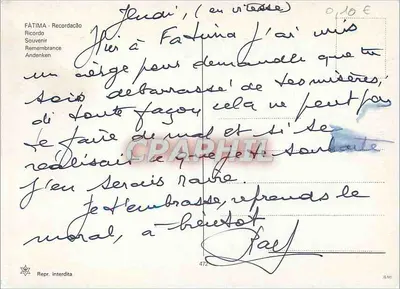 Jeudi, (en vitesse)
0,10 €
FÁTIMA - Recordação
Ricordo
Souvenir
Remembrance
Andenken
Hier à Fatima j'ai mis
un cierge pour demander que tu
sois débarrassé de tes misères,
di toute façon cela ne peut pas
te faire de mal et si se
realisait ce que je te souhaite
j'en serais ravie.
Je t'embrasse, reprends le
moral, à bientôt
CPAPHIL
Repr. interdita
472